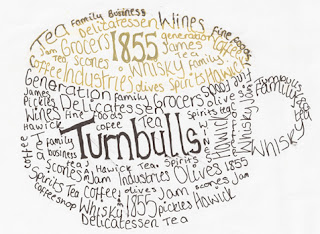 Tea Family Business Wines
Jam Delicatessen Fine Foods
Grocers 1855 generation Coffee
Jam Tea scones James
Coffee Industries Whisky Family
olives Spirits Hawick
Generation family Grocers
James Delicatessen olives
Pickles
Wines Fine Foods Tea Spirits tea
Hawick Coffee
Coffee Turnbulls Whisky Jam Turnbulls
Tea family
business
scones Hawick Tea Spirits Whisky
Jam Industries Olives 1855
Spirits Tea Coffee olives Jam scones Jam
Coffeeshop Whisky 1855 pickles Hawick
Delicatessen Tea